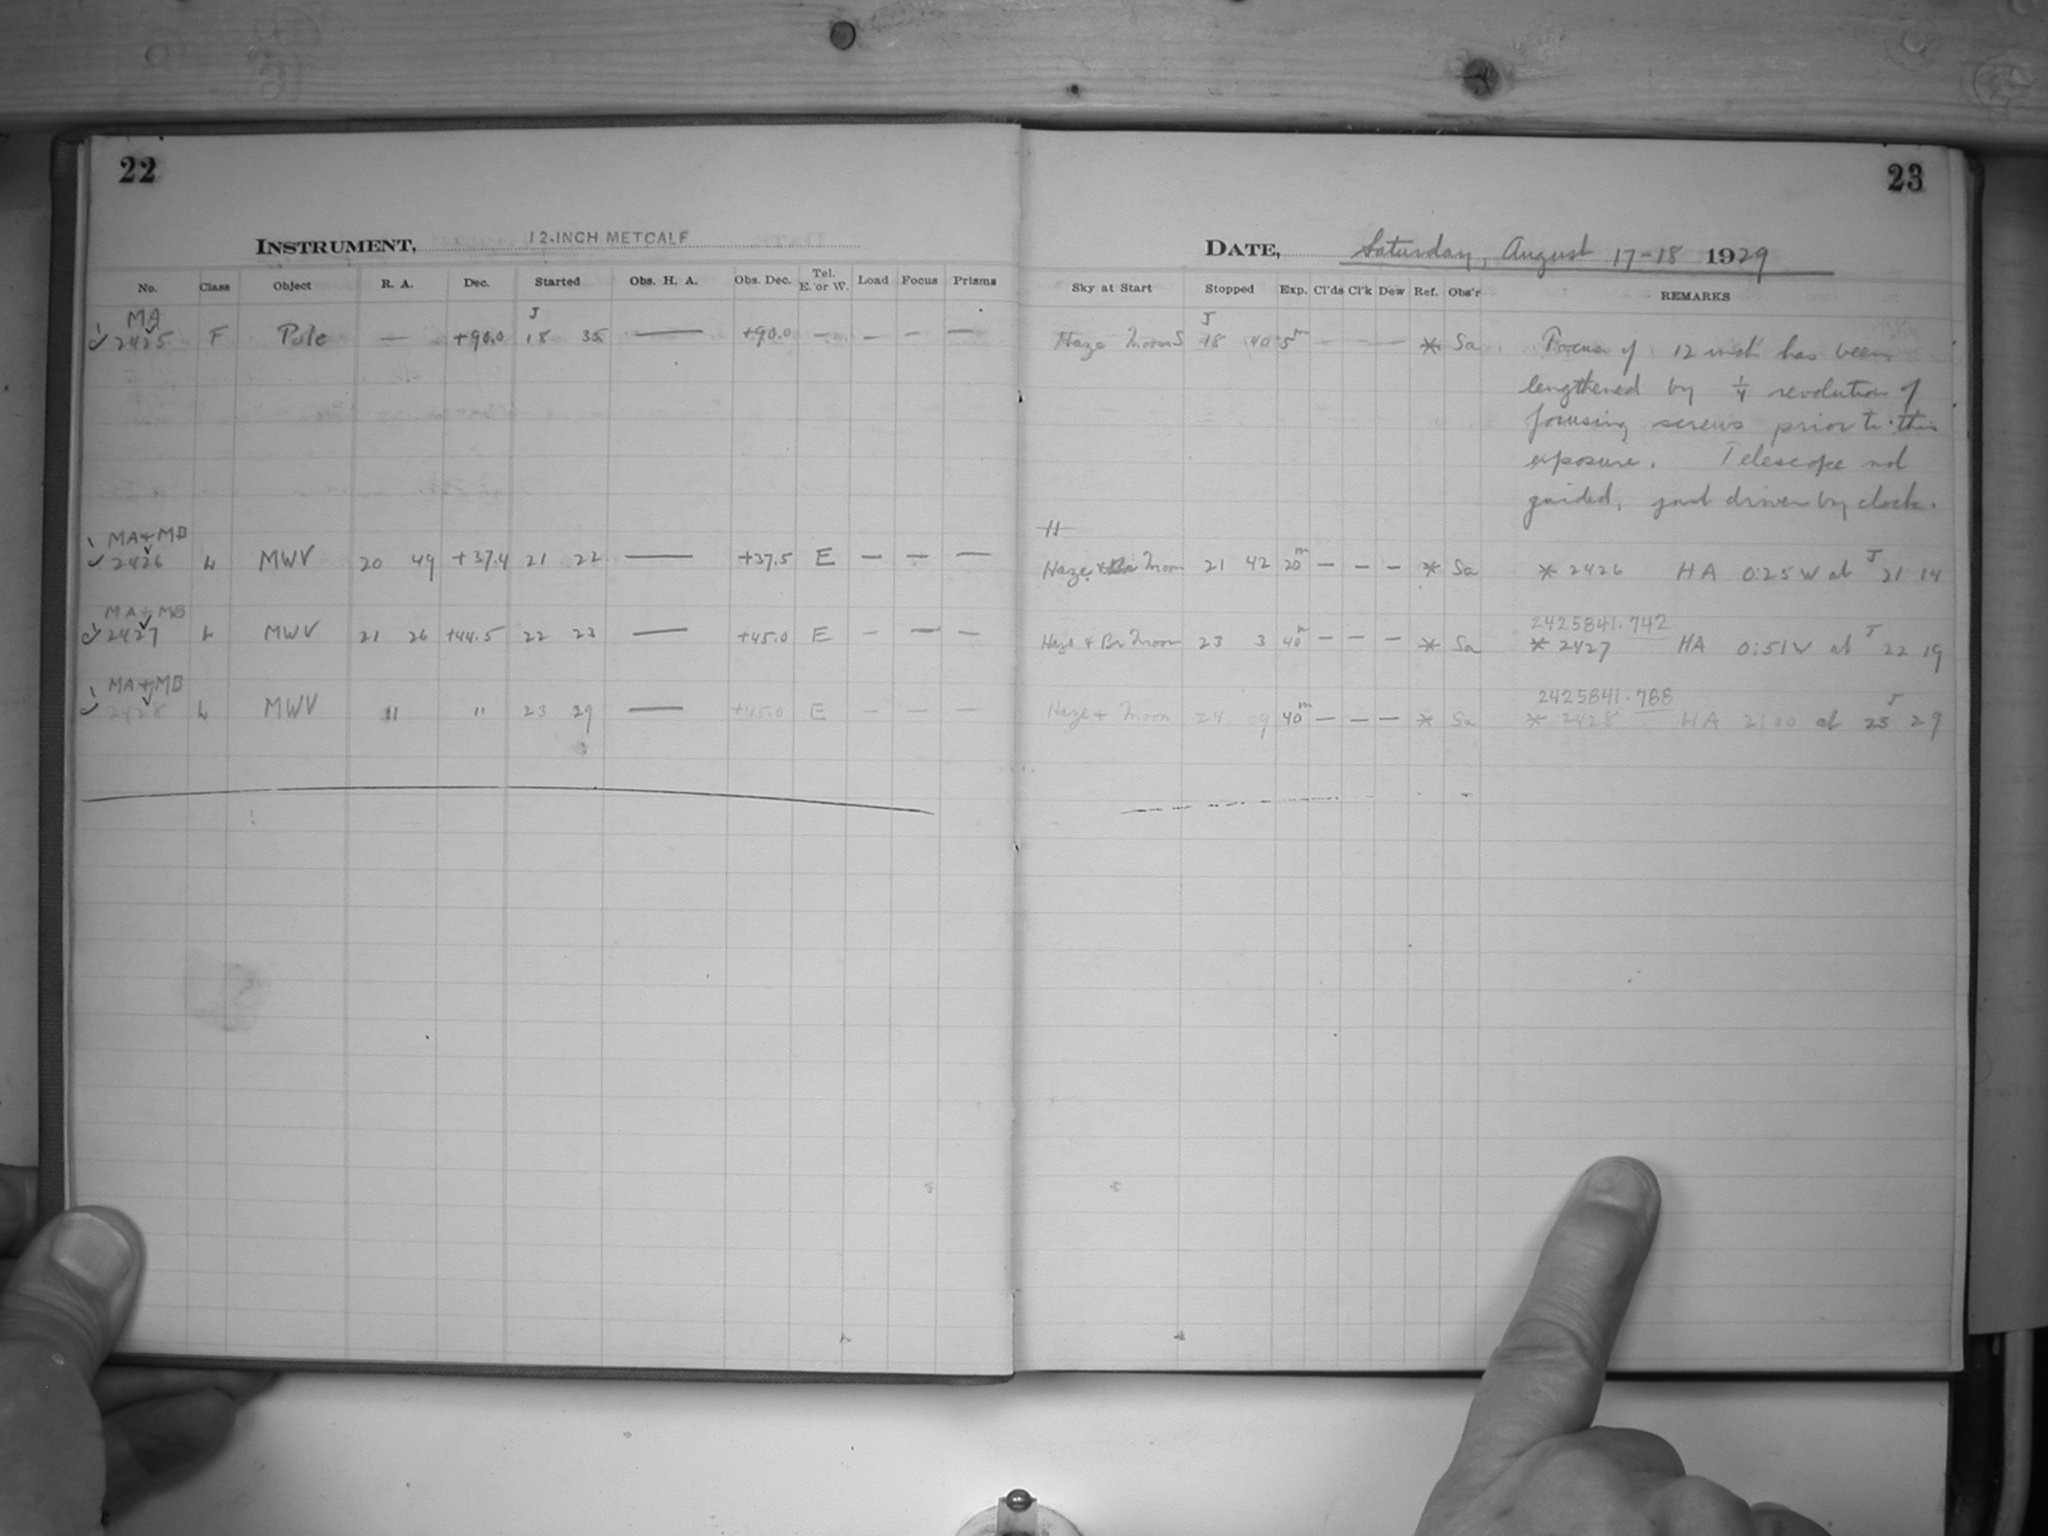 22
INSTRUMENT, 12-INCH METCALF
No. Class Object R. A. Dec. Started Obs. H. A. Obs. Dec. Tel. E. or W. Load Focus Prisms
MA J
2425 F Pole — +90.0 18 35 — +90.0 — — — —
MA+MB
2426 L MWV 20 49 +37.4 21 22 — +37.5 E — — —
MA+MB
2427 L MWV 21 26 +44.5 22 23 — +45.0 E — — —
MA+MB
2428 L MWV " " 23 29 — +45.0 E — — —
23
DATE, Saturday, August 17-18 1929
Sky at Start Stopped Exp. Cl'ds Cl'k Dew Ref. Obs'r REMARKS
J
Haze Moon 18 40 5m — — — * Sa Focus of 12 inch has been
lengthened by 1/4 revolution of
focusing screws prior to this
exposure. Telescope not
guided, just driven by clock.
H
Haze + Moon 21 42 20m — — — * Sa * 2426 HA 0:25 W at J 21 14
2425841.742
Haze + Br Moon 23 3 40m — — — * Sa * 2427 HA 0:51 W at J 22 19
2425841.788
Haze + Moon 24 09 40m — — — * Sa * 2428 HA 2:00 at J 23 29